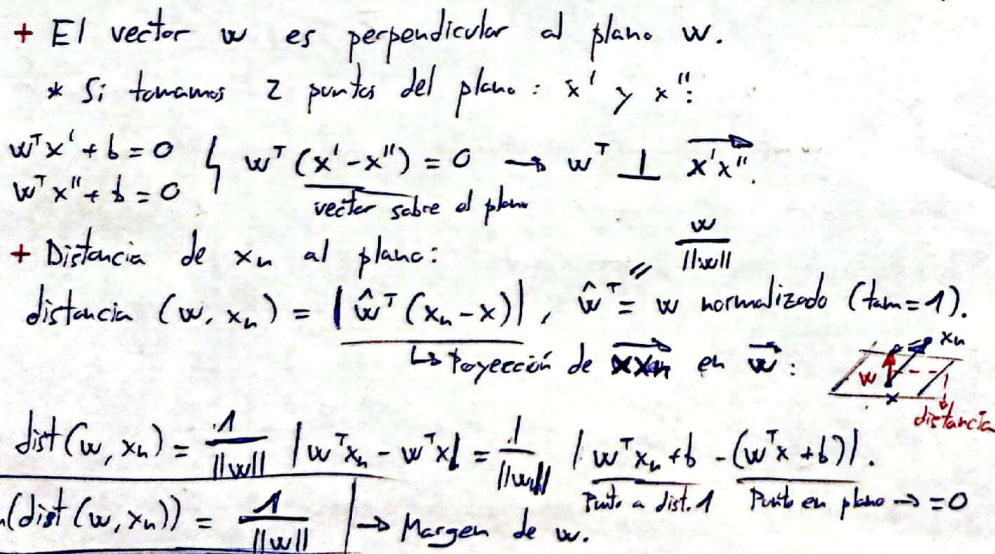 + El vector w es perpendicular al plano w.
* Si tomamos 2 puntos del plano: x' y x'':
wᵀx' + b = 0
wᵀx'' + b = 0
wᵀ(x' - x'') = 0 → wᵀ ⊥ x'x''.
vector sobre el plano
+ Distancia de xₙ al plano:
w / ||w||
distancia (w, xₙ) = | ŵᵀ (xₙ - x) |, ŵᵀ = w normalizado (tam = 1).
↳ Proyección de xxₙ en w:
xₙ
w
x
distancia
dist(w, xₙ) = 1/||w|| | wᵀxₙ - wᵀx | = 1/||w|| | wᵀxₙ + b - (wᵀx + b) |.
Punto a dist. 1
Punto en plano → = 0
(dist(w, xₙ)) = 1/||w|| → Margen de w.